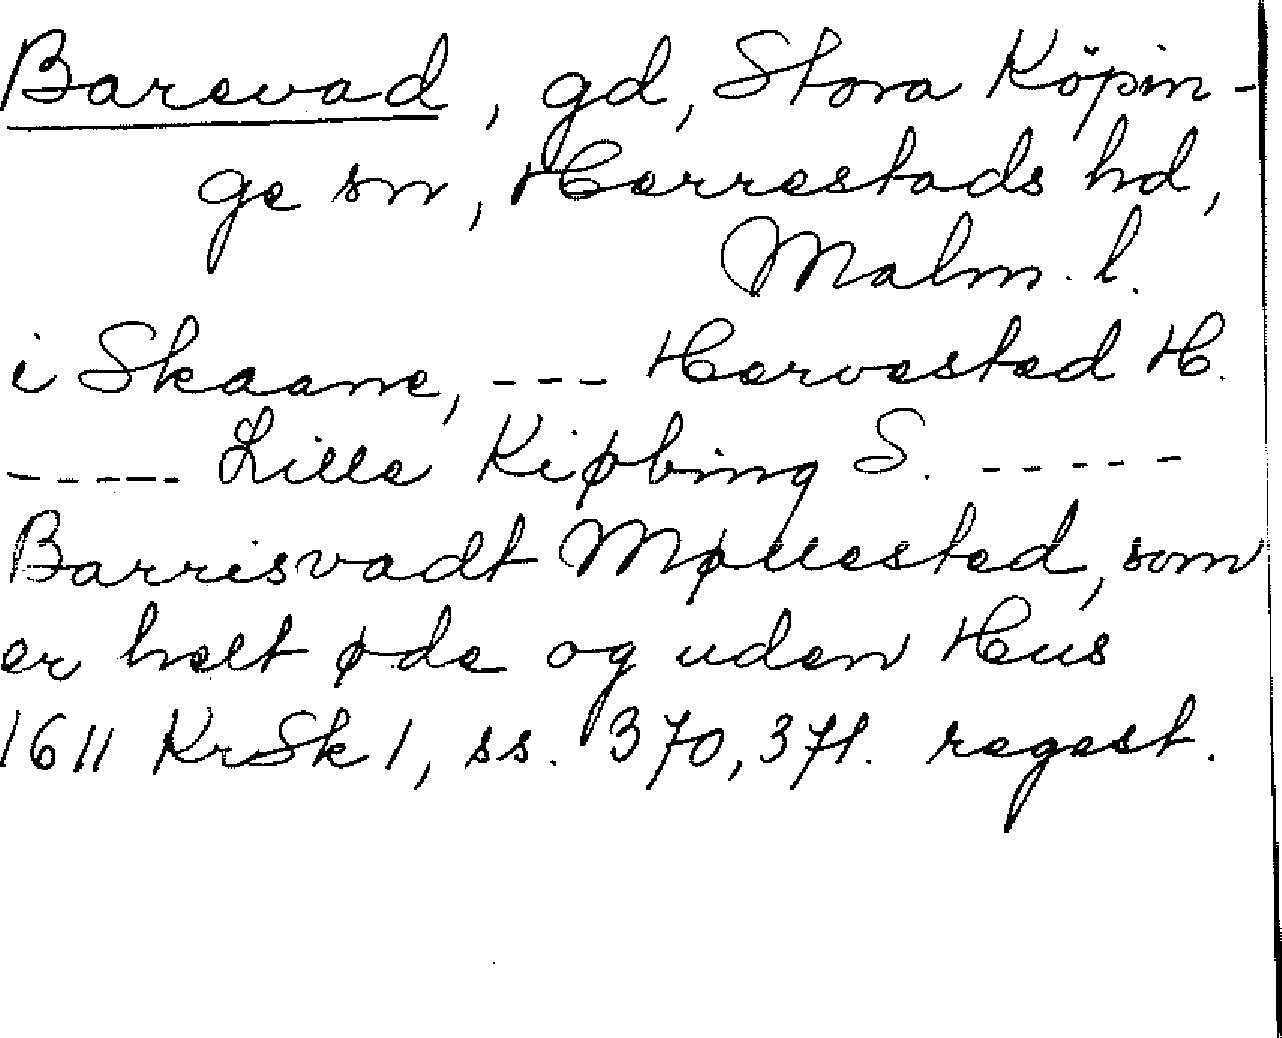 Barevad, gd, Stora Köpin-
ge sn, Herrestads hd,
Malm. l.
i Skaane, --- Hervested H.
----- Lille Kiøbing S. -----
Barrisvadt Møllested, som
er helt øde og uden Hus
1611 KrSk 1, ss. 370, 371. regest.